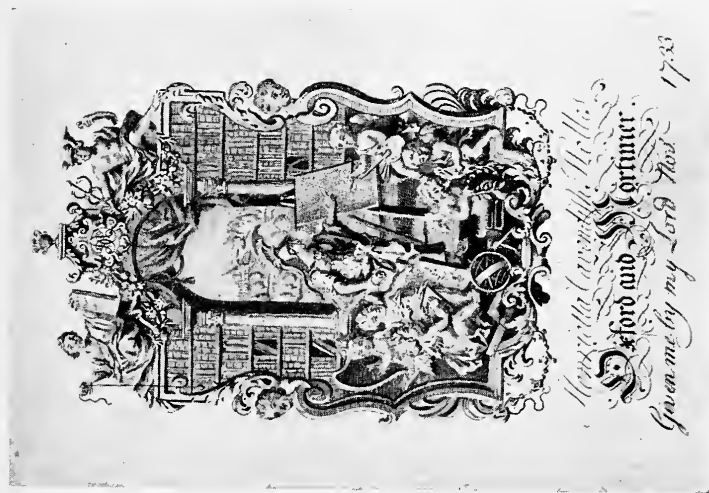 Henrietta Cavendish Holles
Oxford and Mortimer.
Given me by my Lord
1733